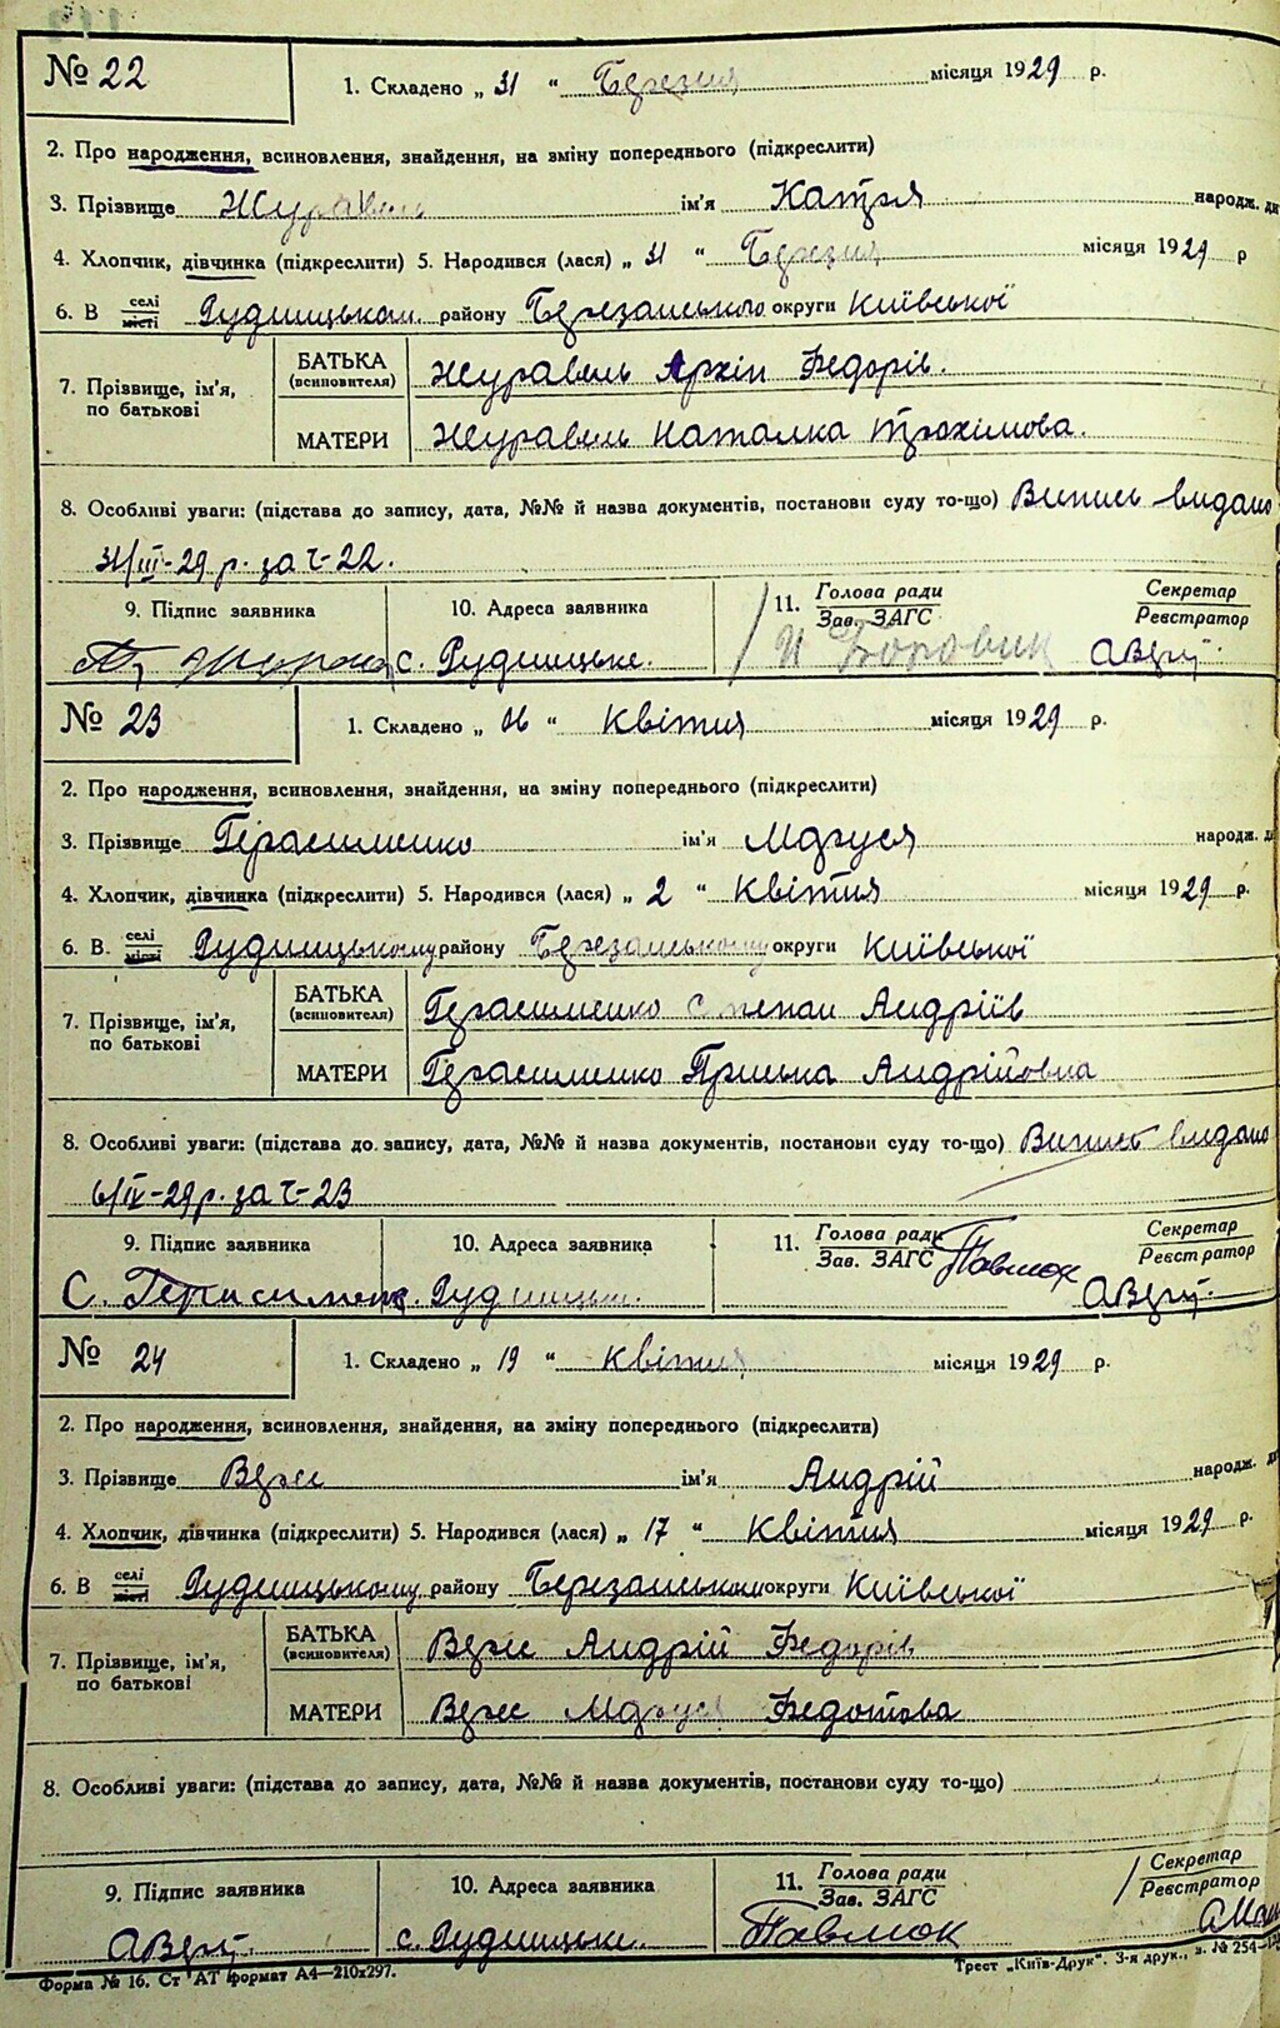 № 22
1. Складено „ 31 “ Березня місяця 1929 р.
2. Про народження, всиновлення, знайдення, на зміну попереднього (підкреслити)
3. Прізвище Журавель ім'я Катря народж. ди
4. Хлопчик, дівчинка (підкреслити) 5. Народився (лася) „ 31 “ Березня місяця 1929 р
6. В селі місті Рудницьком. району Березанського округи Київської
7. Прізвище, ім'я, по батькові
БАТЬКА (всиновителя) Журавель Архіп Федорів.
МАТЕРИ Журавель Наталка Трохімова.
8. Особливі уваги: (підстава до запису, дата, №№ й назва документів, постанови суду то-що) Випись видано
31/III-29 р. за ч-22.
9. Підпис заявника 10. Адреса заявника 11. Голова ради Зав. ЗАГС Секретар Реєстратор
с. Рудницьке. И Боровик
№ 23
1. Складено „ 06 “ Квітня місяця 1929 р.
2. Про народження, всиновлення, знайдення, на зміну попереднього (підкреслити)
3. Прізвище Герасименко ім'я Маруся народж. ди
4. Хлопчик, дівчинка (підкреслити) 5. Народився (лася) „ 2 “ Квітня місяця 1929 р.
6. В. селі місті Рудницькому району Березанському округи Київської
7. Прізвище, ім'я, по батькові
БАТЬКА (всиновителя) Герасименко Степан Андріїв
МАТЕРИ Герасименко Пришка Андрійовна
8. Особливі уваги: (підстава до запису, дата, №№ й назва документів, постанови суду то-що) Випись видано
6/IV-29 р. за ч-23
9. Підпис заявника 10. Адреса заявника 11. Голова ради Зав. ЗАГС Секретар Реєстратор
С. Герасименк с. Рудницьк. Павлюк
№ 24
1. Складено „ 19 “ Квітня місяця 1929 р.
2. Про народження, всиновлення, знайдення, на зміну попереднього (підкреслити)
3. Прізвище Верж ім'я Андрій народж. ди
4. Хлопчик, дівчинка (підкреслити) 5. Народився (лася) „ 17 “ Квітня місяця 1929 р.
6. В селі місті Рудницькому району Березанському округи Київської
7. Прізвище, ім'я, по батькові
БАТЬКА (всиновителя) Верж Андрій Федорів
МАТЕРИ Верж Маруся Федотова
8. Особливі уваги: (підстава до запису, дата, №№ й назва документів, постанови суду то-що)
9. Підпис заявника 10. Адреса заявника 11. Голова ради Зав. ЗАГС Секретар Реєстратор
с. Рудницьке. Павлюк
Форма № 16. Ст АТ формат А4—210x297. Трест „Київ-Друк“. 3-я друк., з. № 254—